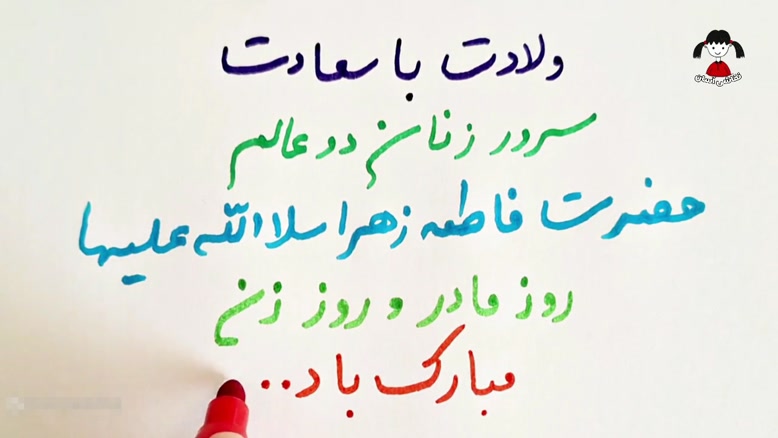 ولادت با سعادت
سرور زنان دو عالم
حضرت فاطمه زهرا سلام الله علیها
روز مادر و روز زن
مبارک باد...
نقاشی آسان